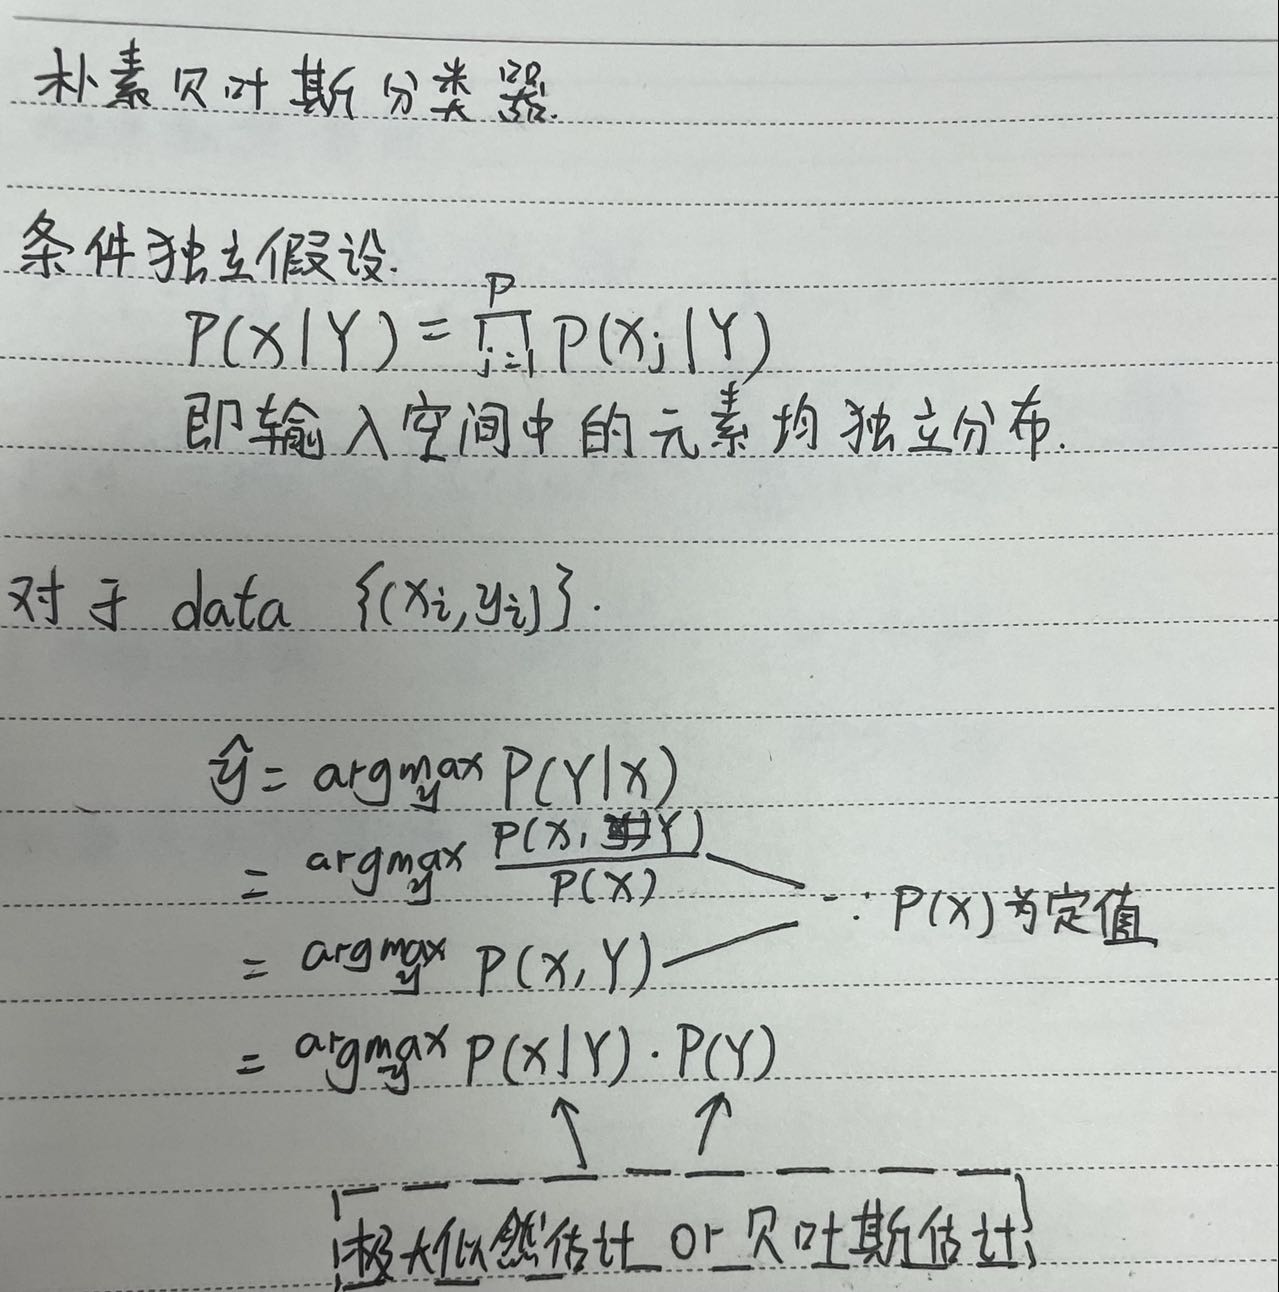 朴素贝叶斯分类器.
条件独立假设.
P(X|Y) = ∏_{j=1}^{P} P(X_j|Y)
即输入空间中的元素均独立分布.
对于 data {(x_i, y_i)}.
ŷ = argmax_y P(Y|X)
= argmax_y P(X, Y) / P(X)
∵ P(X)为定值
= argmax_y P(X, Y)
= argmax_y P(X|Y) · P(Y)
极大似然估计 or 贝叶斯估计